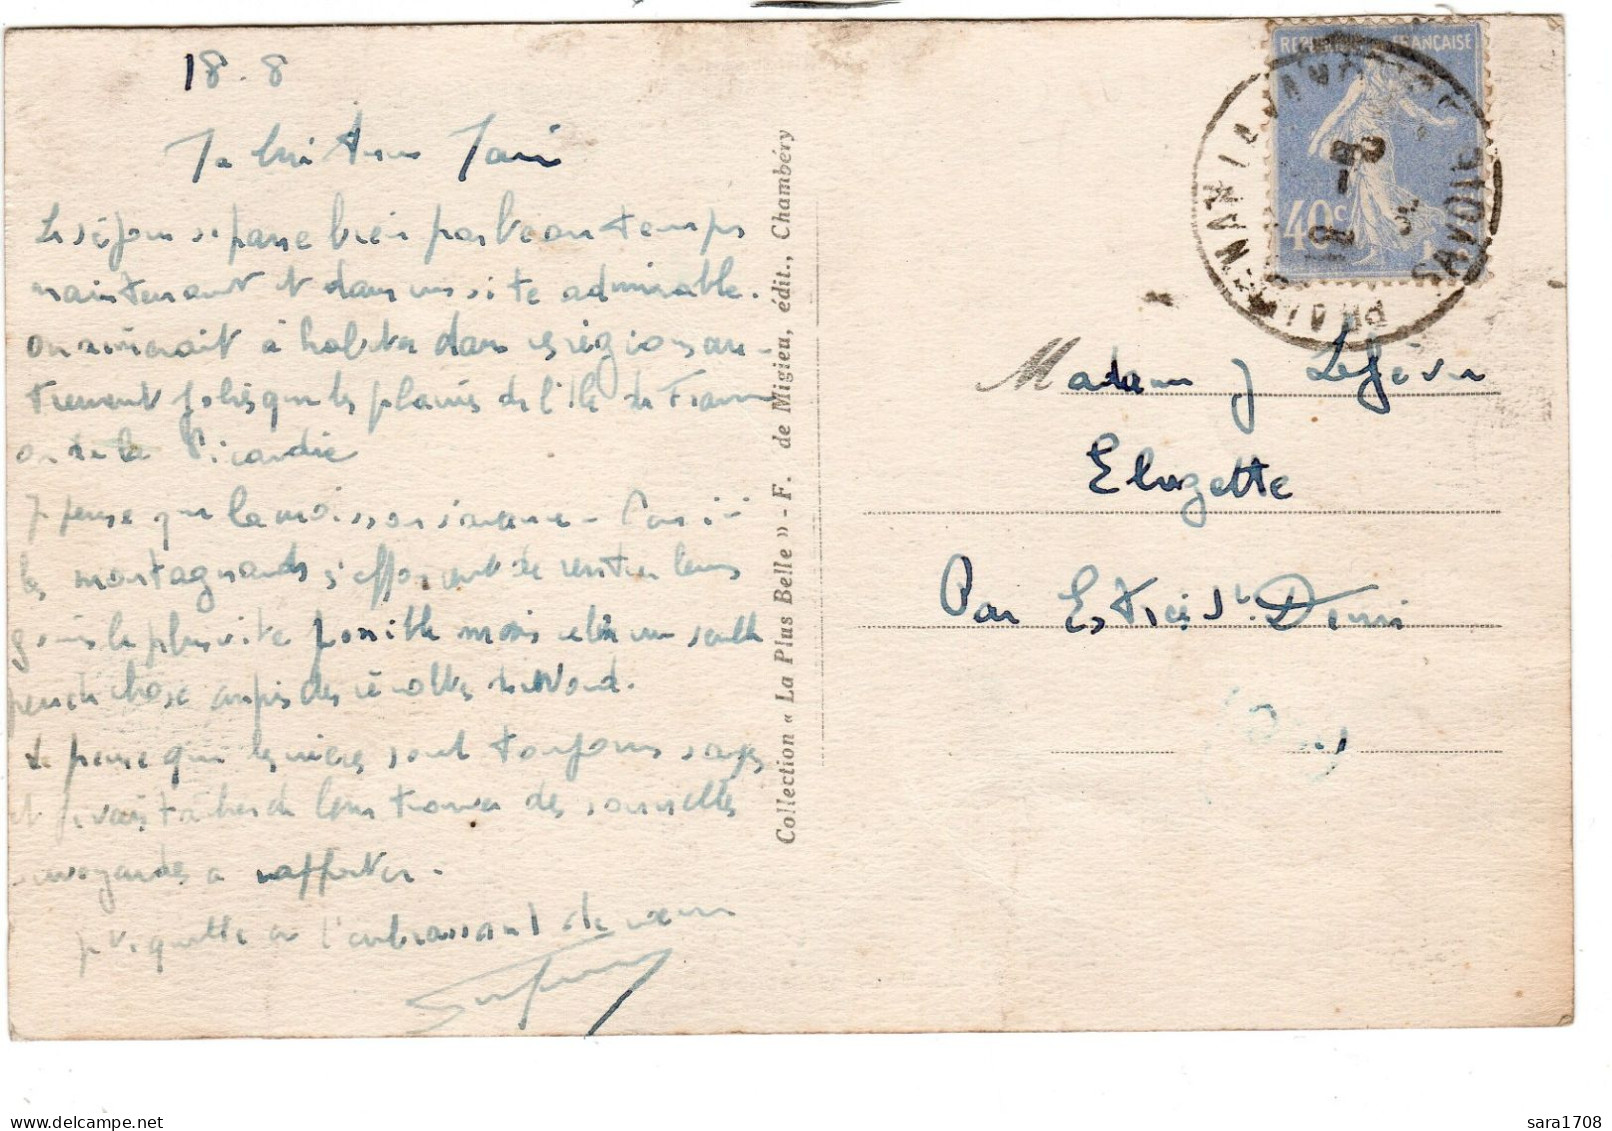 18.8
Le séjour se passe bien par beau temps
maintenant et dans un site admirable.
on aimerait à habiter dans ces régions au-
trement jolies que les plaines de l'Ile de France
ou de la Picardie
Je pense que la moisson s'avance -
les montagnards s'efforcent de rentrer leurs
le plus vite possible mais cela me semble
peu de chose auprès des récoltes du Nord.
Je pense que les nièces sont toujours sages
et je vais tâcher de leur trouver des
savoyardes à rapporter.
Je te quitte en t'embrassant de
Collection « La Plus Belle » - F. de Migieu, édit., Chambéry
REPUBLIQUE FRANÇAISE
40c
SAVOIE
Madame J Lefèvre
Eluzette
Par Estrées St. Denis
sara1708